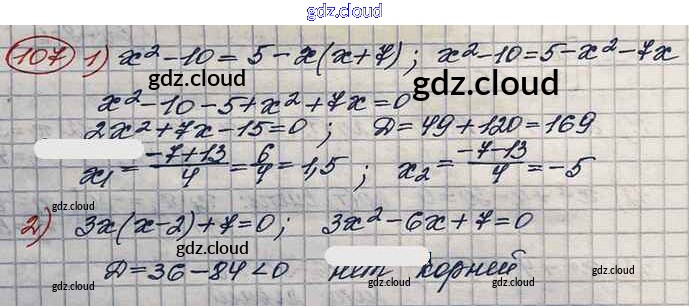 gdz.cloud
107 1) x² - 10 = 5 - x(x+7) ; x² - 10 = 5 - x² - 7x
gdz.cloud gdz.cloud
x² - 10 - 5 + x² + 7x = 0
2x² + 7x - 15 = 0 ; D = 49 + 120 = 169
x₁ = (-7+13)/4 = 6/4 = 1,5 ; x₂ = (-7-13)/4 = -5
gdz.cloud
2) 3x(x-2) + 7 = 0 ; 3x² - 6x + 7 = 0
gdz.cloud gdz.cloud
D = 36 - 84 < 0 нет корней
gdz.cloud gdz.cloud gdz.cloud